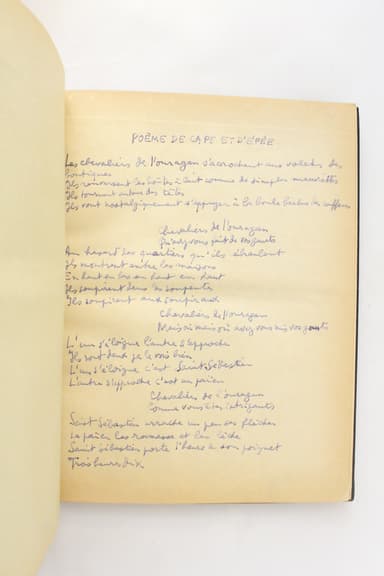 POÈME DE CAPE ET D'ÉPÉE
Les chevaliers de l'ouragan s'accrochent aux volets des
boutiques
Ils renversent les boîtes à lait comme de simples mauviettes
Ils tournent autour des têtes
Ils vont nostalgiquement s'appuyer à la boule des coiffeurs
Chevaliers de l'ouragan
Qu'avez-vous fait de vos gants
Au hasard des quartiers qu'ils ébranlent
Ils montrent entre les maisons
En haut en bas en haut en haut
Ils soupirent dans les soupentes
Ils soupirent aux soupiraux
Chevaliers de l'ouragan
Mais où mais où avez-vous mis vos gants
L'un s'éloigne l'autre s'approche
Ils sont deux je le vois bien
L'un s'éloigne c'est Saint Sébastien
L'autre s'approche c'est un païen
Chevaliers de l'ouragan
Comme vous êtes intrigants
Saint Sébastien arrache un peu ses flèches
Le païen les ramasse et les lèche
Saint Sébastien porte l'heure à son poignet
Trois heures dix